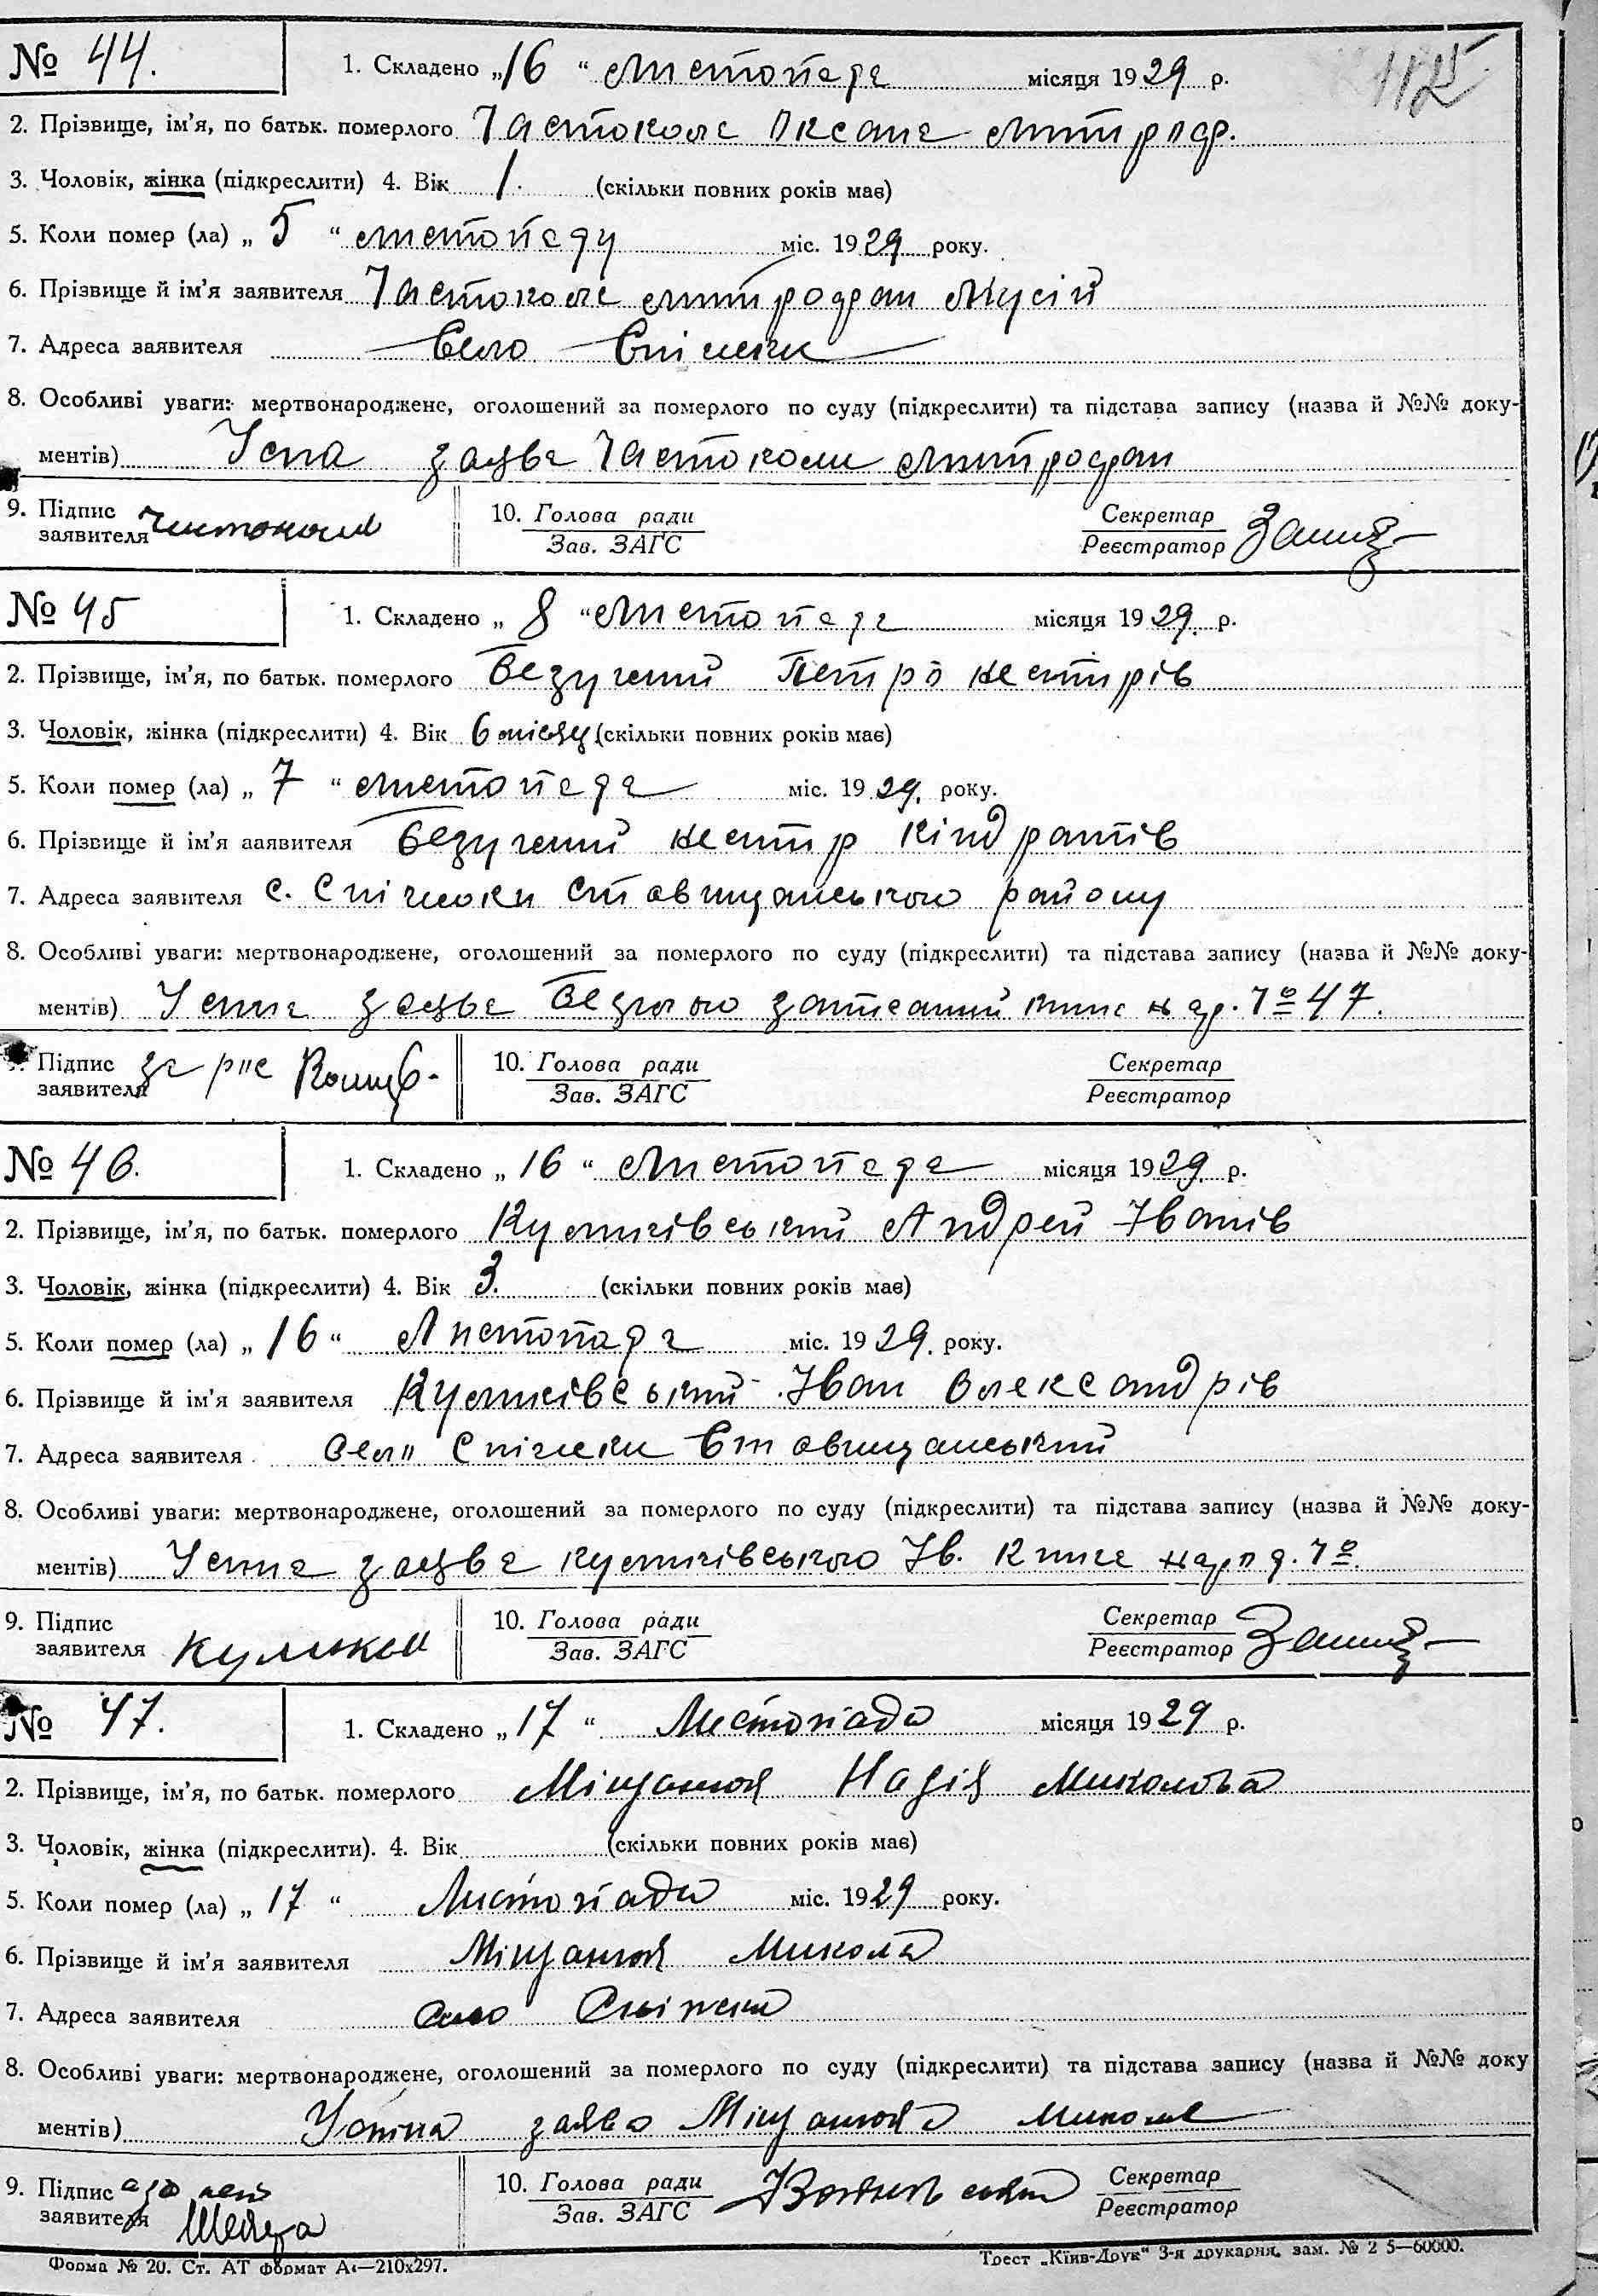 № 44. 1. Складено „16“ листопада місяця 1929 р. 112
2. Прізвище, ім'я, по батьк. померлого Частокола Оксана Митроф.
3. Чоловік, жінка (підкреслити) 4. Вік 1. (скільки повних років має)
5. Коли помер (ла) „5“ листопаду міс. 1929 року.
6. Прізвище й ім'я заявителя Частокола Митрофан
7. Адреса заявителя Село
8. Особливі уваги: мертвонароджене, оголошений за померлого по суду (підкреслити) та підстава запису (назва й №№ доку-
ментів) Усна заява Частоколи Митрофан
9. Підпис
заявителя
10. Голова ради
Зав. ЗАГС
Секретар
Реєстратор
№ 45 1. Складено „8“ листопада місяця 1929 р.
2. Прізвище, ім'я, по батьк. померлого Безугений Петро Нестирів
3. Чоловік, жінка (підкреслити) 4. Вік 6 місяц (скільки повних років має)
5. Коли помер (ла) „7“ листопада міс. 1929. року.
6. Прізвище й ім'я заявителя Безугений Нестир Кіндратів
7. Адреса заявителя с. Спічинки Ставищанського району
8. Особливі уваги: мертвонароджене, оголошений за померлого по суду (підкреслити) та підстава запису (назва й №№ доку-
ментів) Усна заява записаний книга 47.
9. Підпис
заявителя за
10. Голова ради
Зав. ЗАГС
Секретар
Реєстратор
№ 46. 1. Складено „16“ листопада місяця 1929. р.
2. Прізвище, ім'я, по батьк. померлого Куликівський Андрей Іванів
3. Чоловік, жінка (підкреслити) 4. Вік 3. (скільки повних років має)
5. Коли помер (ла) „16“ Листопада міс. 1929. року.
6. Прізвище й ім'я заявителя Куликівський Іван Олександрів
7. Адреса заявителя село Спічинки Ставищанський
8. Особливі уваги: мертвонароджене, оголошений за померлого по суду (підкреслити) та підстава запису (назва й №№ доку-
ментів) Усна заява Куликівського Ів. Книга
9. Підпис
заявителя
10. Голова ради
Зав. ЗАГС
Секретар
Реєстратор
№ 47. 1. Складено „17“ Листопада місяця 1929 р.
2. Прізвище, ім'я, по батьк. померлого Надія Миколова
3. Чоловік, жінка (підкреслити). 4. Вік (скільки повних років має)
5. Коли помер (ла) „17“ Листопада міс. 1929 року.
6. Прізвище й ім'я заявителя Микола
7. Адреса заявителя село
8. Особливі уваги: мертвонароджене, оголошений за померлого по суду (підкреслити) та підстава запису (назва й №№ доку
ментів) Устна заява Миколи
9. Підпис
заявителя
10. Голова ради
Зав. ЗАГС
Секретар
Реєстратор
Форма № 20. Ст. АТ формат А4—210х297.
Трест „Київ-Друк“ 3-я друкарня, зам. № 2 5—60000.